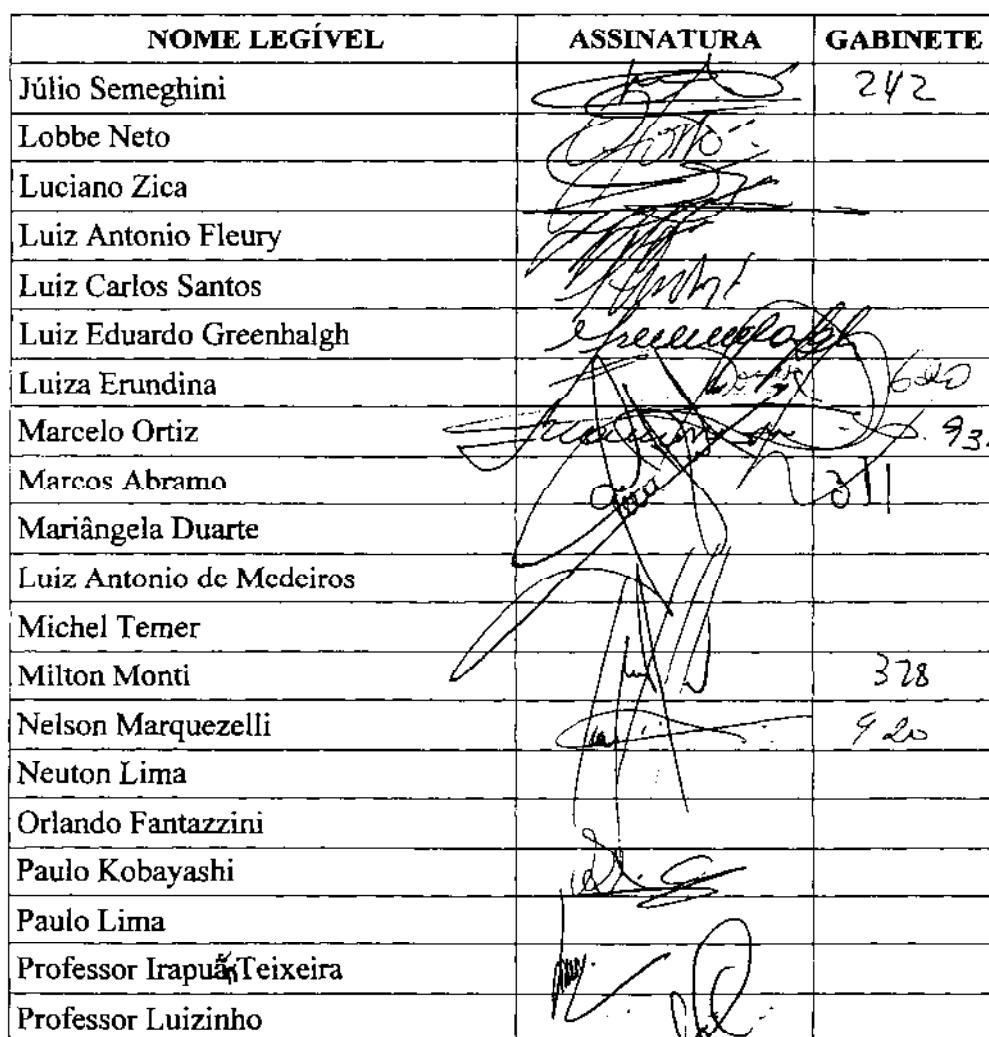 NOME LEGÍVEL ASSINATURA GABINETE
Júlio Semeghini 242
Lobbe Neto
Luciano Zica
Luiz Antonio Fleury
Luiz Carlos Santos
Luiz Eduardo Greenhalgh
Luiza Erundina 620
Marcelo Ortiz
Marcos Abramo
Mariângela Duarte
Luiz Antonio de Medeiros
Michel Temer
Milton Monti 328
Nelson Marquezelli 920
Neuton Lima
Orlando Fantazzini
Paulo Kobayashi
Paulo Lima
Professor Irapuã Teixeira
Professor Luizinho